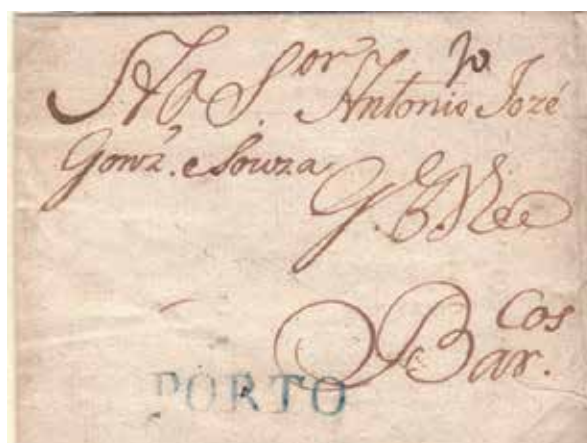 S.or Antonio Jozé
Gonz. e Souza
G. G.
Bar.cos
PORTO